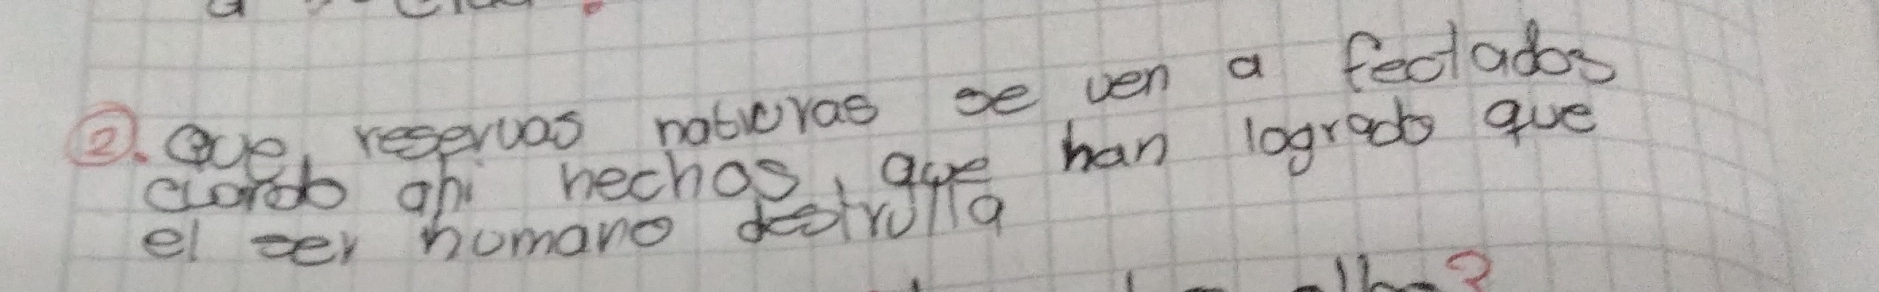 2. Que, reservas naturas se ven a fectados
cuando ahi hechos, que han logrado que
el ser humano destrulla